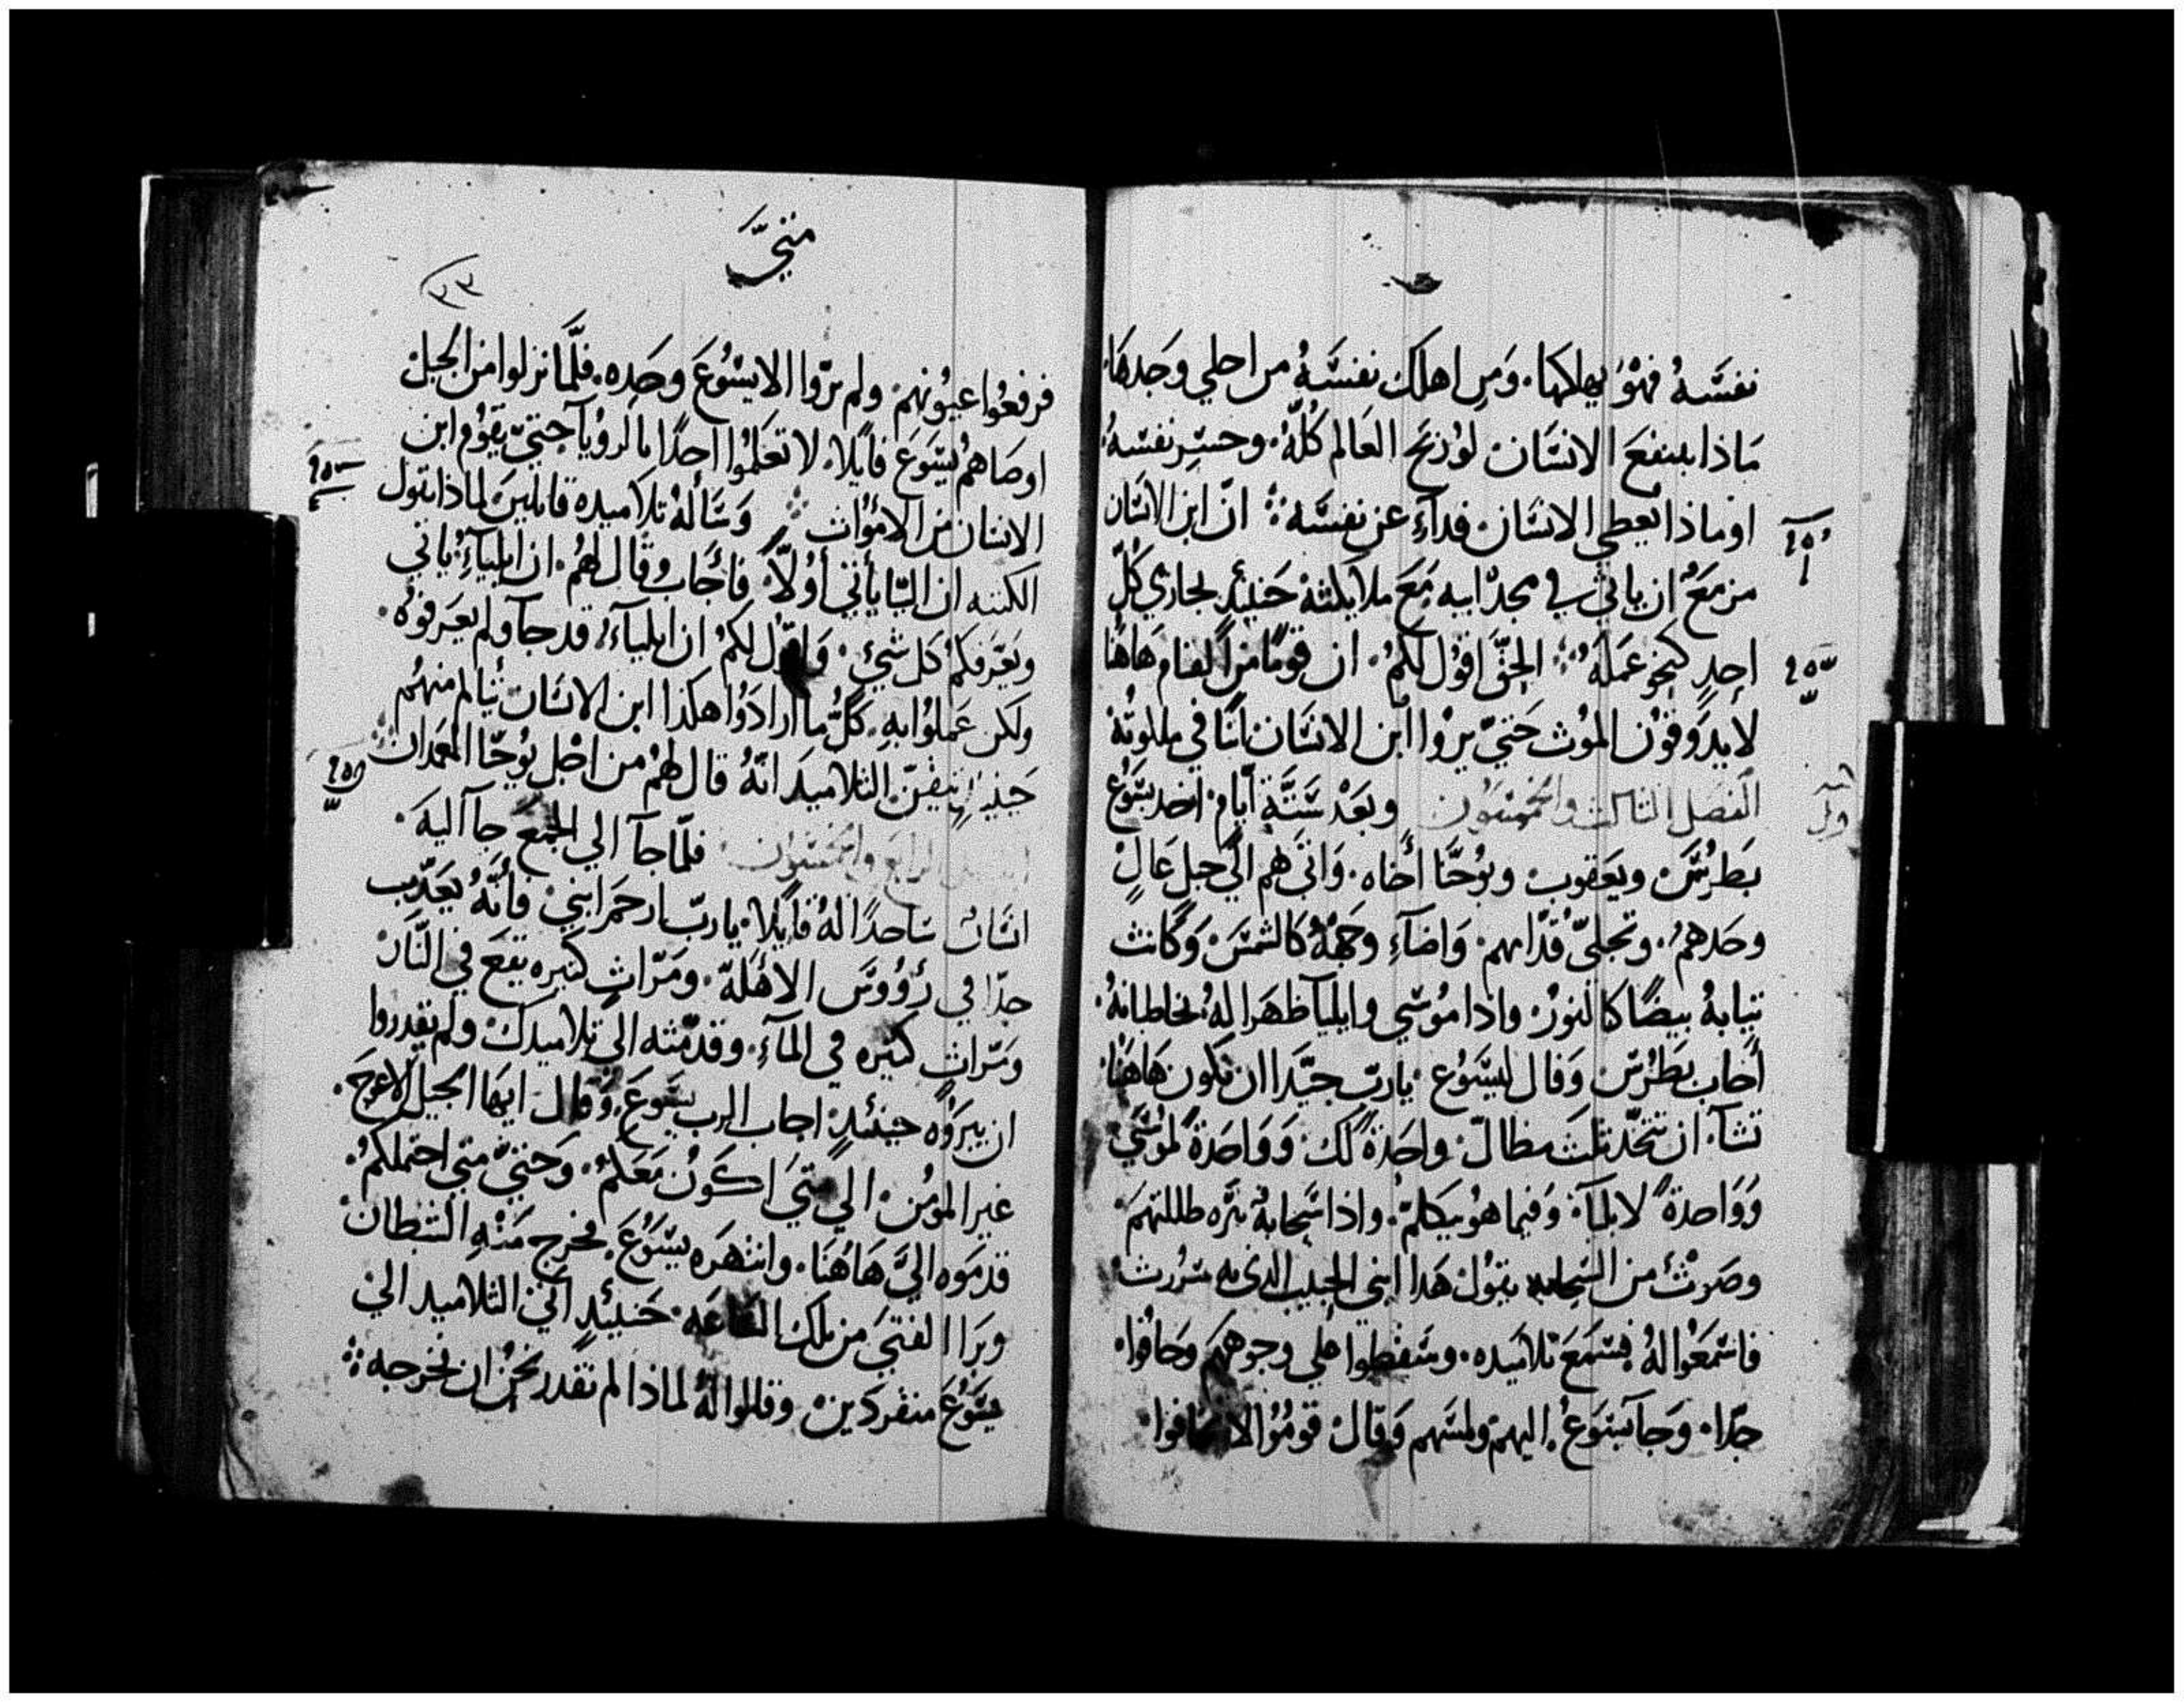 نفسَهُ فهوَ يهلكها. وَمن اهلك نفسَهُ من اجلي وجَدهَا.
مَاذا ينفعَ الانسَان لوُ ربَح العَالم كُلّهُ. وخسِر نفسَهُ.
او ماذا يُعطي الانسَان فدآءِ عن نفسَه ⁘ انّ ابن الانسَان
مزمعٌ ان ياتي في مجد ابيه مَعَ ملايكته حَنيئدٍ يجازي كُلّ
احدٍ كنحو عَمَلهُ ⁘ الحقّ اقوُل لكمُ. ان قومًا من القيام هَاهُنا
لا يدوقوُن الموُت حَتيّ يروُا ابن الانسَان اتيًا في ملكوته
الفصَل الثالث والخمسوُن وبَعْد سَتّةِ ايّام اخد يسَوُع
بَطرُسَ ويعَقوب ويوُحنّا أخاه. وَاتى هم الىَ جبل عَالٍ
وحَدهمُ. وتجليّ قدّامهم. وَاضآءِ وجههُ كالشمسَ وَكانت
تيابهُ بيضًا كالنورُ واذا موُسَي وايليآ ظهَرا لهُ يخاطبانهُ.
أجاب بَطرُسَ وَقال ليسَوُع يا ربّ جيّدًا ان نكون هَاهَنا.
تشآ ان نتخّد ثلَث مظالّ واحَدةً لك وَوَاحَدةً لموُسَي
وَوَاحدةً لايليآ. وَفيما هوُ يتكلّمُ. واذا سَحابةُ نيّره ظللتهمَ
وصَوتُ من السَحابه يقوُل هَدا ابني الحبيب الدى به سُررت
فاسَمعَوا لهُ فسَمعَ تلاميَده. وسَقطوا على وجوههمَ وَخافُوا.
جدّا. وَجآ يسَوعُ اليهم ولمسَهم وَقال قوموُا لا تخافوا
متيّ
٣٣
فرفعوُا عيوُنهم. ولم يرَوا الا يسَوُعَ وحَده. فلّما نزلوا من الجَبل
اوصَاهم يسَوعَ قايلا. لا تعَلموُا احدًا بالروُيا حتيّ يقوُم ابن
الانسَان من الاموُات ⁘ وَسَألهُ تلاميده قايلينَ لماذا تقول
الكتبه ان ايليّا يأتي أوُلاً. فأجَاب وقال لهمُ. ان ايليآءِ ياتي
ويعَرّفكمُ كل شيءِ. وَاقول لكمُ ان ايليآءُ قد جآ ولم يعَرفوهُ.
ولكن عَملوُا بهِ كلّ ما ارادَوُا هكذا ابن الانسَان يُتالم منهُم
حَينيدٍ تيقنّ التلاميدَ انهُ قال لهمُ من اجل يوُحّنا المعمدان ⁘
الرابع والخمسَون فلّما جآ الي الجمعَ جآ اليهَ.
انسَان سَاجدًا لهُ قايلا. يا ربّ ارحمَ ابني فأنهُ يعَدّب
جدّا في رؤوُسَ الأهلةّ. ومَرّاتٍ كتيره يقعَ في النّار
ومَرّات كتيره في المآءِ. وقدّمته الي تلاميدك ولم يقدروا
ان يبروُه حينئدٍ اجاب الرب يسَوعَ. وَقال ايهَا الجيل الاعوجَ.
غير الموُمن الي متىَ اكوَن معَكمُ. وَحتىّ متي احتملكمُ.
قدموَه اليّ هَاهُنا. وانتهرَه يسَوُعَ. فخرج مَنه الشيطان
وبَرا الفتىَ من تلك السَاعَه. حَنيئدٍ اتىَ التلاميد الي
يسَوُعَ منفردَين وقالوا لهُ لماذا لم نقدر نحَنُ ان نخرجه ⁘